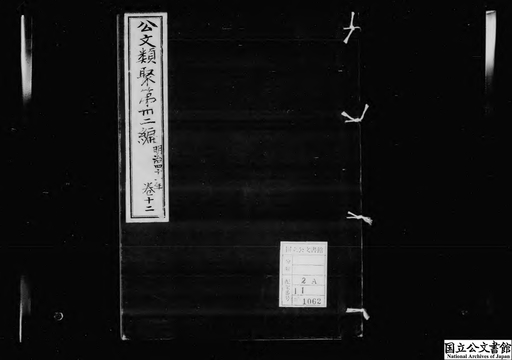 公文類聚第卅二編
明治四十一年
巻十二
国立公文書館
2A
11
1062
国立公文書館
National Archives of Japan